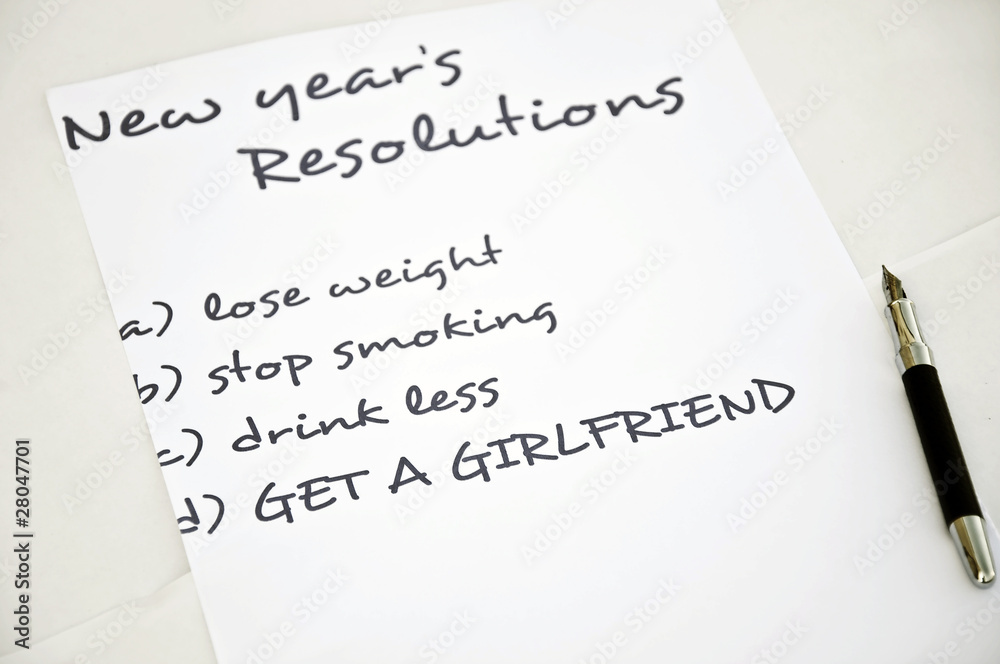 New year's
Resolutions
a) lose weight
b) stop smoking
c) drink less
d) GET A GIRLFRIEND
Adobe Stock | #28047701